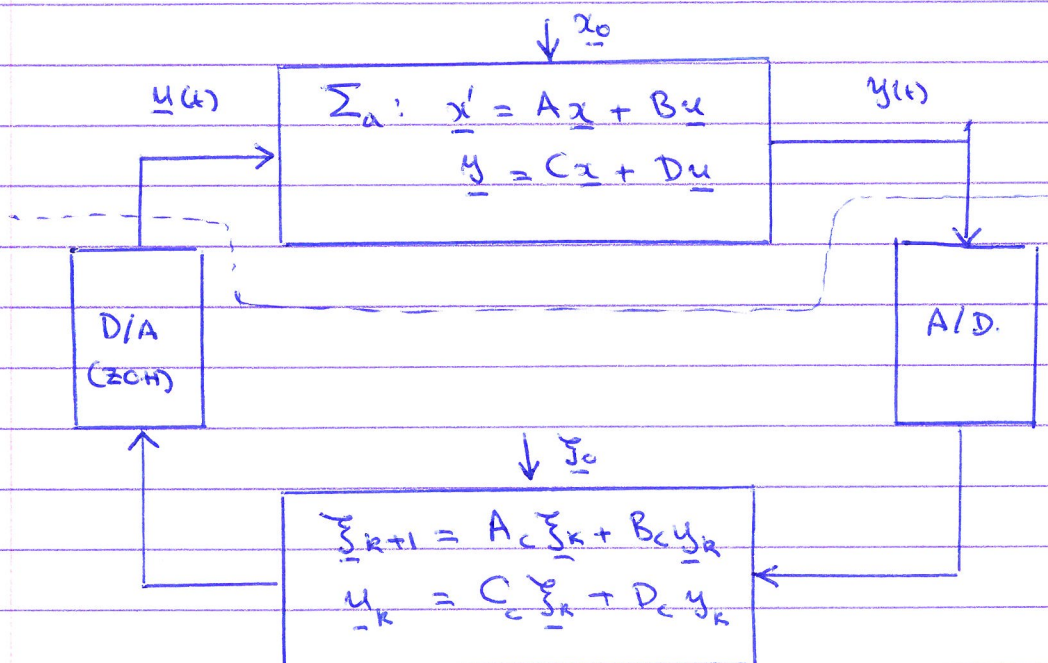 x̲₀
u̲(t)
Σₐ: x̲' = A x̲ + B u̲
y̲ = C x̲ + D u̲
y(t)
D/A
(ZOH)
A/D.
ξ̲₀
ξ̲ₖ₊₁ = A_c ξ̲ₖ + B_c y̲ₖ
u̲ₖ = C_c ξ̲ₖ + D_c yₖ